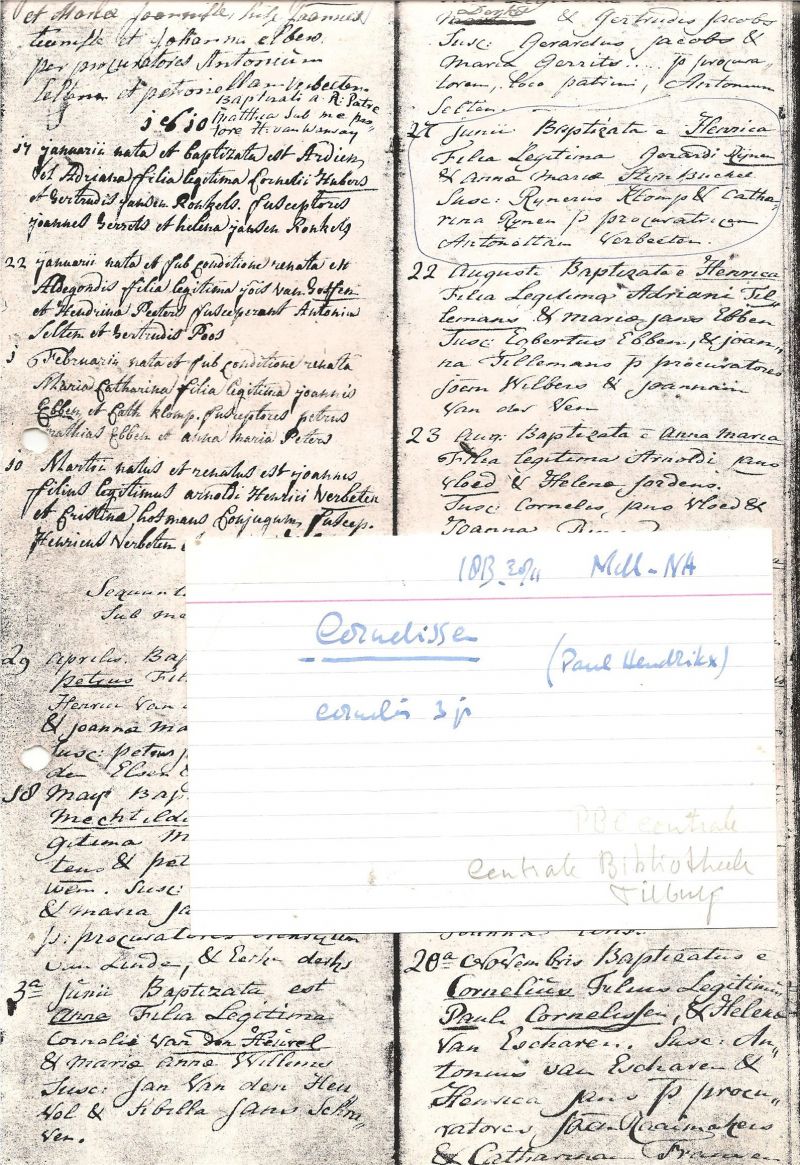 et Maria
et Johanna Elbers
per procuratores Antonium
et petronellam Verbeeten
Baptizati a: R: Patre
Matthia sub me pas-
tore H: van Wanray
1810
17 januarii nata et baptizata est Ardien
et Adriana filia legitima Cornelii Hubers
et Gertrudis jansen Ronkels. susceptores
joannes Gerrots et helena jansen Ronkels
22 januarii nata et sub conditione renata est
Aldegondis filia legitima jois van
et Hendrina Peeters susceperant Antonia
Selten et Gertrudis Poos
3 Februarii nata et sub conditione renata
Maria Catharina filia legitima joannis
Ebben et Cath klomp. susceptores petrus
mathias Ebben et anna maria Peters
10 Martii natus et renatus est joannes
filius legitimus arnoldi Henrici Verbeten
et Cristina hosmans Conjugum. suscep.
Henricus Verbeten
Sequunt
Sub me
29 aprilis. Bap
petrus Fil
Henrici Van
& joanna ma
susc: petrus
den Elsen &
18 Maij Bap
Mechtild
gitima M
tens & pet
wem. Susc:
& maria Ja
p: procuratores
van Linde, & derks
3a junii Baptizata est
Anna Filia Legitima
Cornelii Van den Heuvel
& Maria anna Willems
Susc: Jan Van den Heu
vel & Sibilla Jans Schri
ven.
& Gertrudis Jacobs
Susc: Gerardus Jacobs &
Maria Gerrits.... p procura
torem, loco patrini, Antonium
Selten
27 junii Baptizata e Henrica
Filia Legitima Gerardi Rynen
& Anna Maria
Susc: Rynerus Klomp & Catha-
rina Rynen p procuratricem
Antonettam Verbeeten.
22 Augusti Baptizata e Henrica
Filia Legitima Adriani Til
lemans & Maria Jans Ebben
Susc: Egbertus Ebben, & joan
na Tillemans p procuratores
Joem Wilbers & joannam
Van der Ven
23 Aug: Baptizata e Anna Maria
Filia legitima Arnoldi jans
Vloed & Helena Jordens.
Susc: Cornelis, jans Vloed &
Joanna
18B Mill-NA
Cornelissen
(Paul Hendrikx)
Cornelis 3 jr
PBC centrale
Centrale Bibliotheek
Tilburg
20a Novembris Baptizatus e
Cornelius Filius Legitimus
Pauli Cornelissen, & Helena
Van Escharen. Susc: An
tonius van Escharen &
Henrica jans p procu
ratores Joan Raaimakers
& Catharinam Fransen